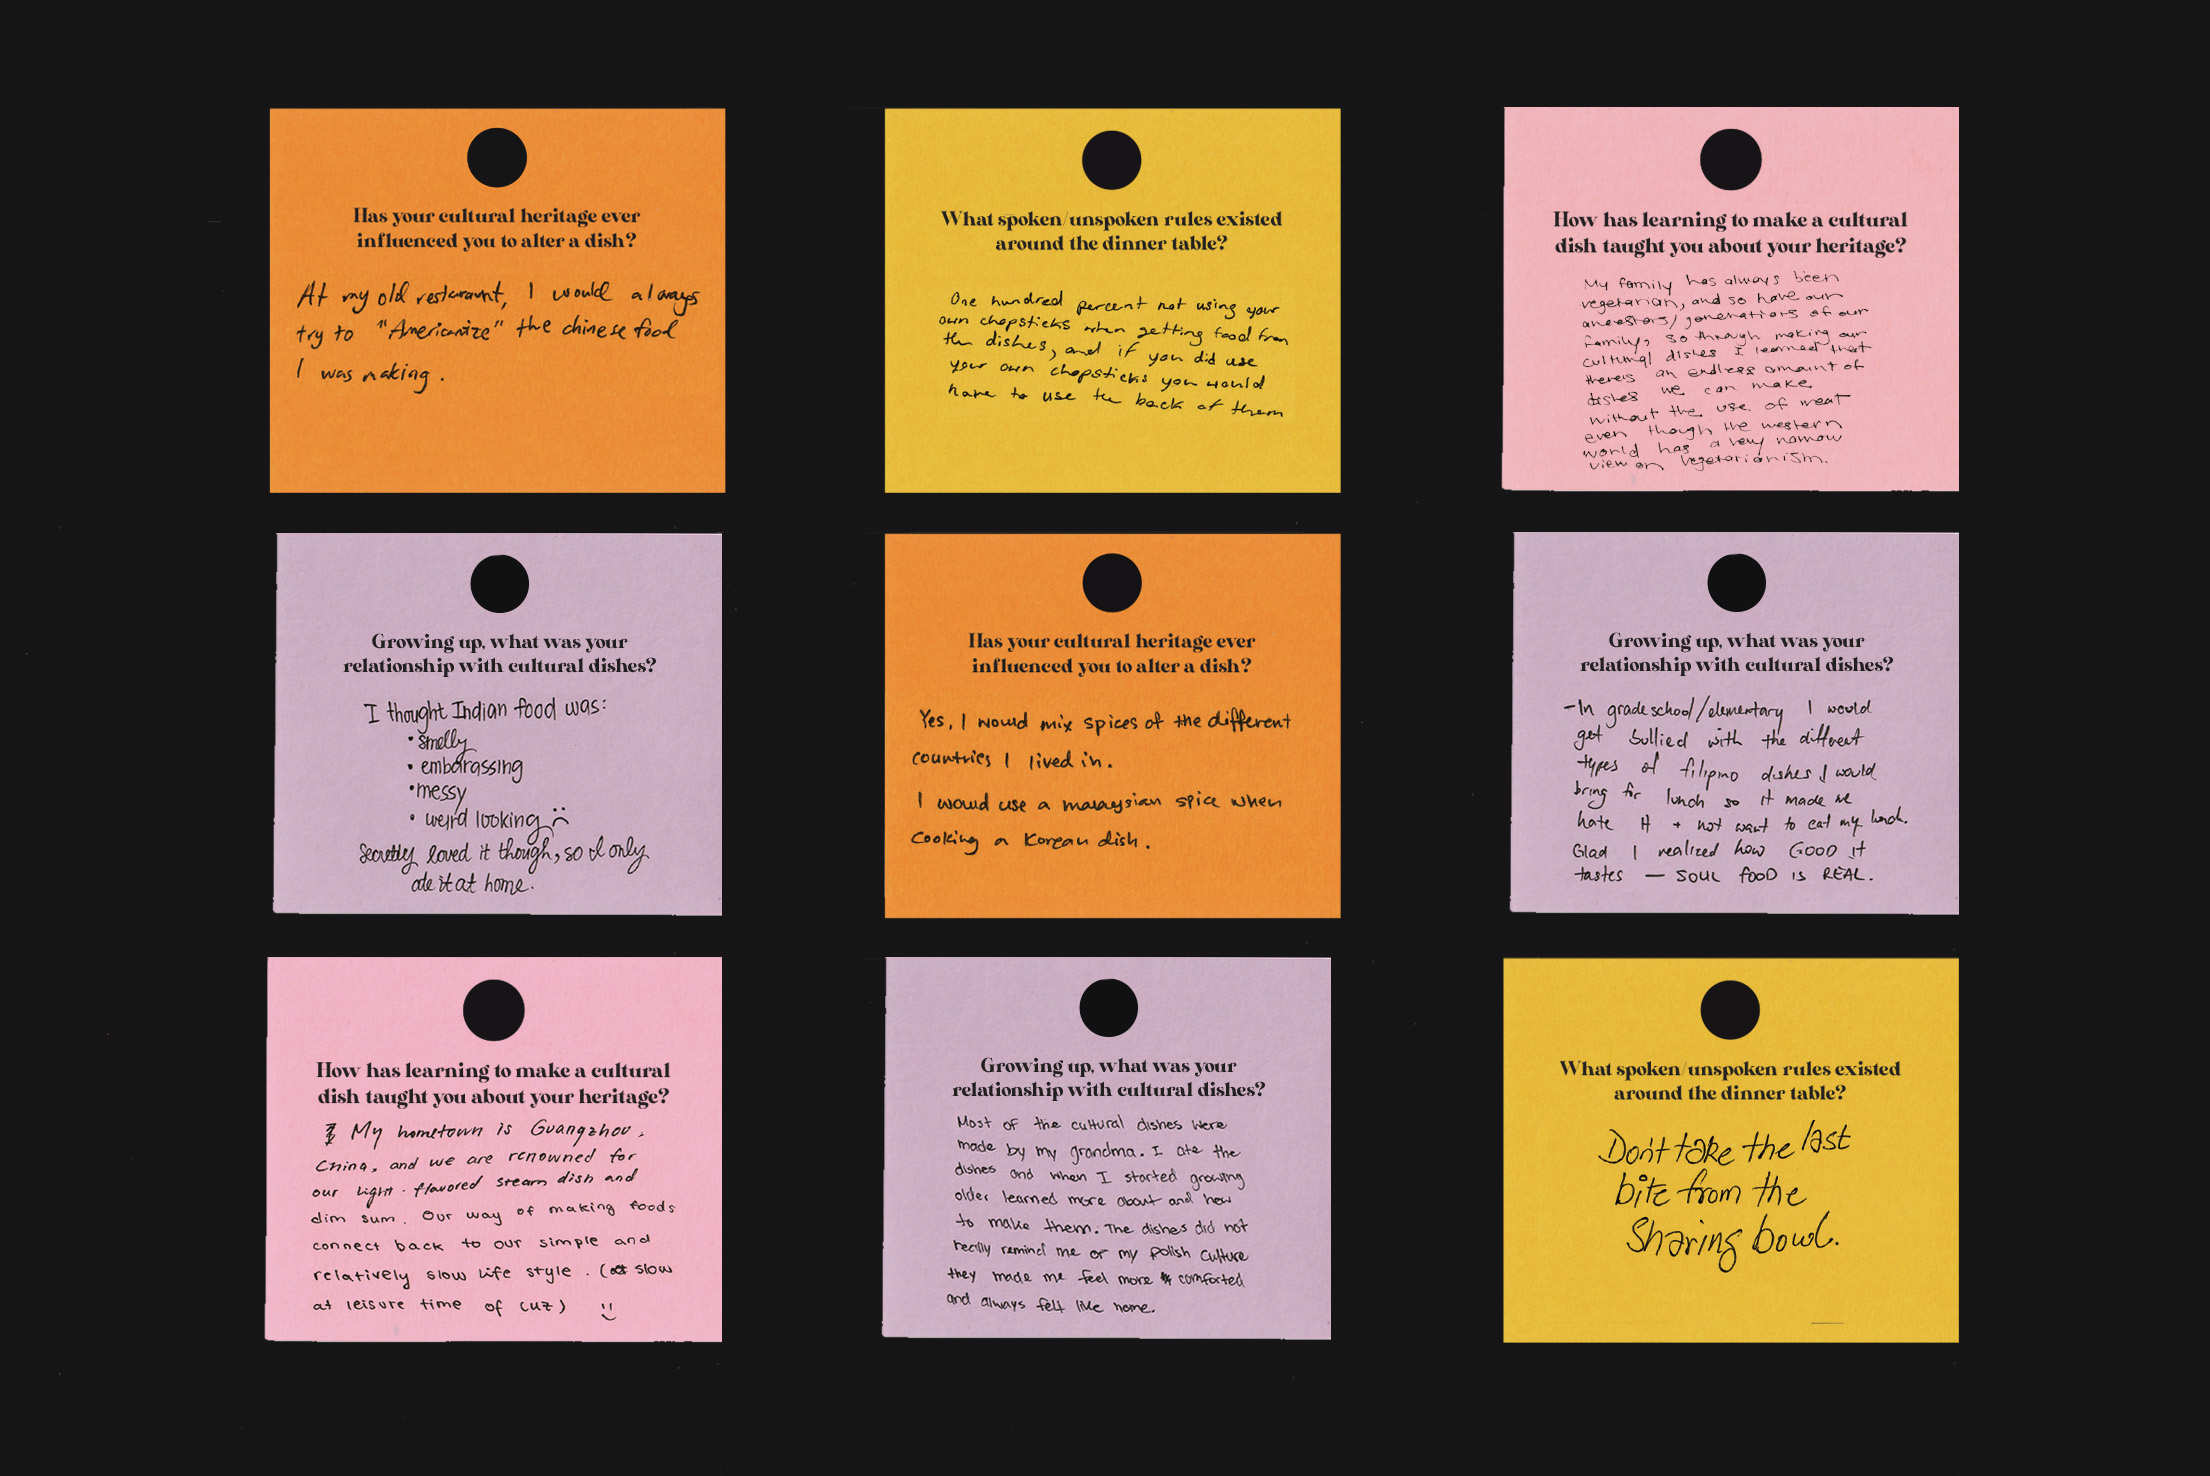 Has your cultural heritage ever
influenced you to alter a dish?
At my old restaraunt, I would always
try to "Americanize" the chinese food
I was making.
What spoken/unspoken rules existed
around the dinner table?
One hundred percent not using your
own chopsticks when getting food from
the dishes, and if you did use
your own chopsticks you would
have to use the back of them
How has learning to make a cultural
dish taught you about your heritage?
My family has always been
vegetarian, and so have our
ancestors/generations of our
family, so through making our
cultural dishes I learned that
there's an endless amount of
dishes we can make
without the use of meat
even though the western
world has a very narrow
view on vegetarianism.
Growing up, what was your
relationship with cultural dishes?
I thought Indian food was:
• smelly
• embarassing
• messy
• weird looking
Secretly loved it though, so I only
ate it at home.
Has your cultural heritage ever
influenced you to alter a dish?
Yes, I would mix spices of the different
countries I lived in.
I would use a malaysian spice when
cooking a Korean dish.
Growing up, what was your
relationship with cultural dishes?
-In gradeschool/elementary I would
get bullied with the different
types of filipino dishes I would
bring for lunch so it made me
hate it + not want to eat my lunch.
Glad I realized how GOOD it
tastes — SOUL FOOD IS REAL.
How has learning to make a cultural
dish taught you about your heritage?
My hometown is Guangzhou,
China, and we are renowned for
our light-flavored steam dish and
dim sum. Our way of making foods
connect back to our simple and
relatively slow life style. (slow
at leisure time of cuz) :)
Growing up, what was your
relationship with cultural dishes?
Most of the cultural dishes were
made by my grandma. I ate the
dishes and when I started growing
older learned more about and how
to make them. The dishes did not
really remind me of my Polish culture
they made me feel more comforted
and always felt like home.
What spoken/unspoken rules existed
around the dinner table?
Don't take the last
bite from the
Sharing bowl.